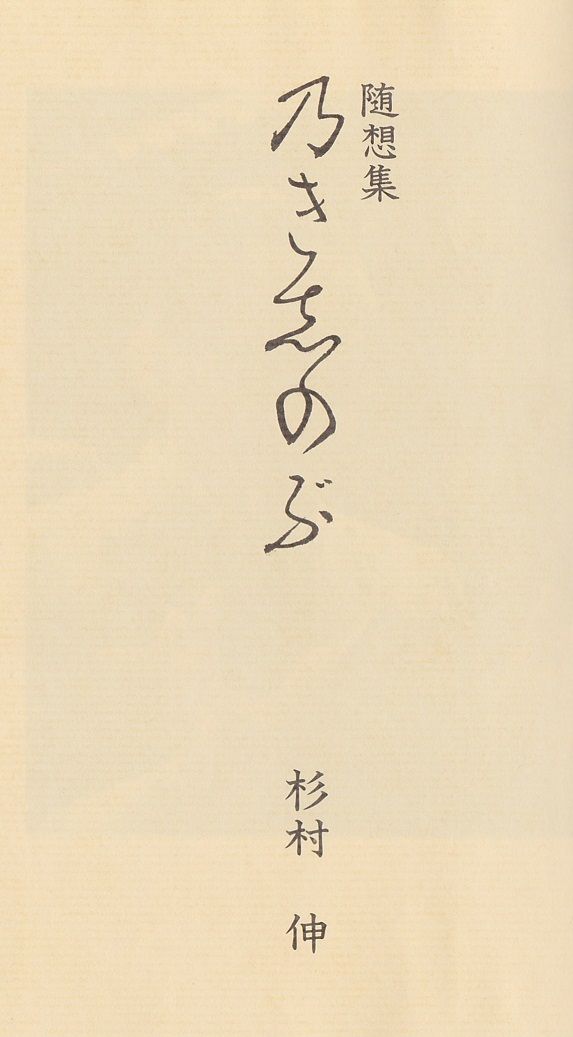 随想集
乃きしのぶ
杉村 伸